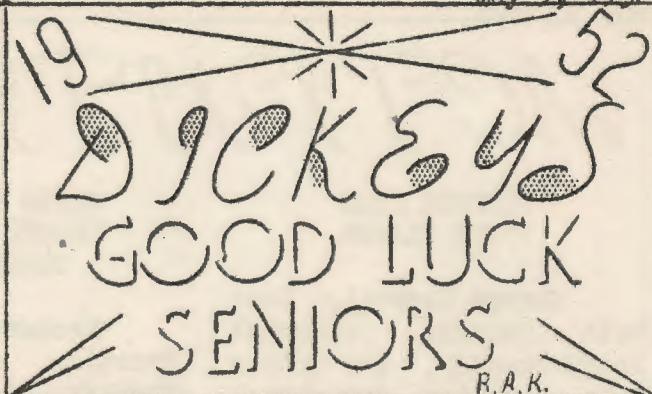 19 52
DICKEYS
GOOD LUCK
SENIORS
R.A.K.